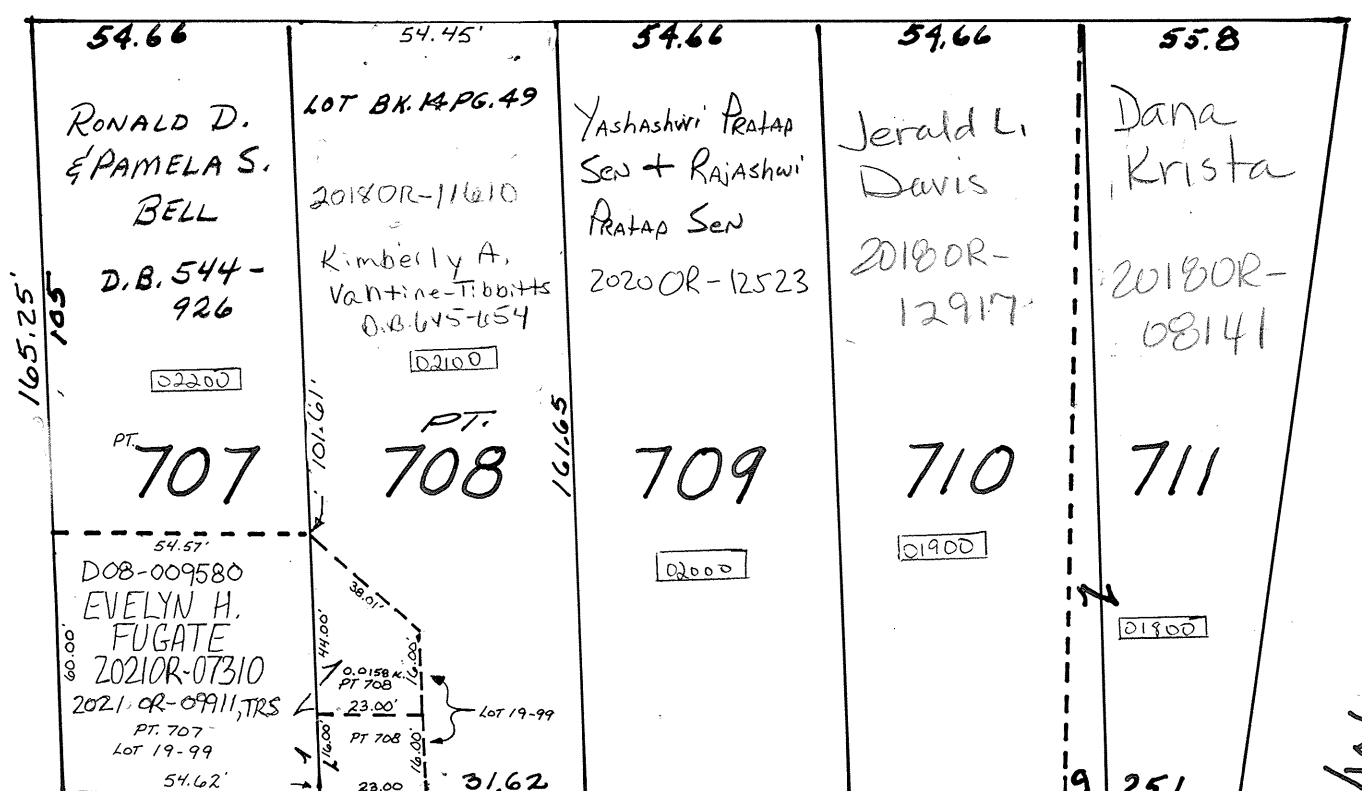 54.66
RONALD D.
& PAMELA S.
BELL
D.B. 544-
926
02200
165.25'
105
PT.
707
54.57'
D08-009580
EVELYN H.
FUGATE
2021OR-07310
2021 OR-09911, TRS
PT. 707
LOT 19-99
60.00'
54.62'
54.45'
LOT BK. 14 PG. 49
2018OR-11610
Kimberly A.
Vantine-Tibbitts
D.B. 645-654
02100
101.61'
PT.
708
161.65
38.01'
44.00'
16.00'
0.0158 A.
PT 708
23.00'
LOT 19-99
16.00'
PT 708
16.00'
23.00
31.62
54.66
Yashashwi Pratap
Sen + Rajashwi
Pratap Sen
2020OR-12523
709
02000
54.66
Jerald L.
Davis
2018OR-
12917
710
01900
55.8
Dana
Krista
2018OR-
08141
711
01800
9
251